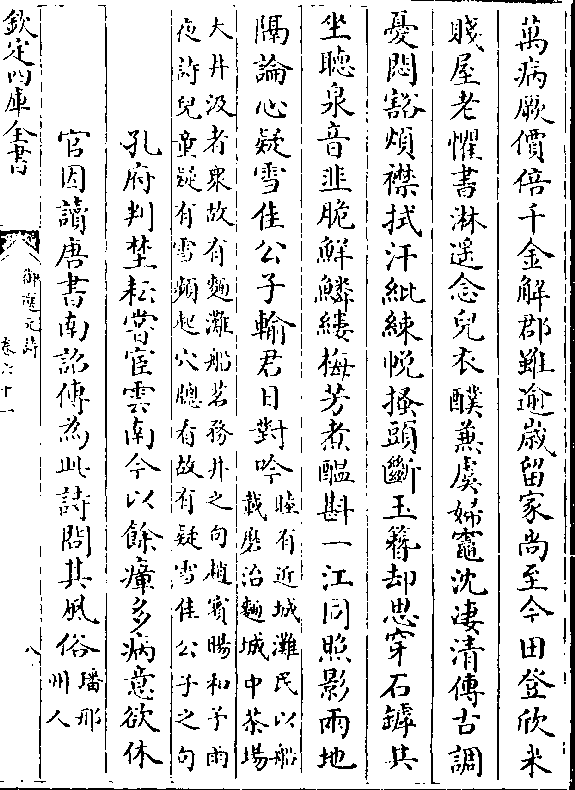 萬病厥價倍千金解郡雖逾歲留家尚至今田登欣米
賤屋老懼書淋遥念兒衣醭兼虞婦竈沈凄清傳古調
憂悶豁煩襟拭汗紕練帨搔頭斷玉簪却思穿石罅共
坐聴泉音韭脆鮮鱗縷梅芳煮醖斟一江同照影兩地
隔論心疑雪佳公子輸君日對吟睦有近城灘民以船
載磨治麵城中茶塲
大井汲者衆故有麵灘船茗務井之句趙賓暘和予雨
夜詩兒童疑有雪頻起穴牕看故有疑雪佳公子之句
孔府判埜耘嘗宦雲南今以餘瘴多病意欲休
官因讀唐書南詔傳為此詩問其風俗璠那
州人
欽定四庫全書
御選元詩
卷六十一
八